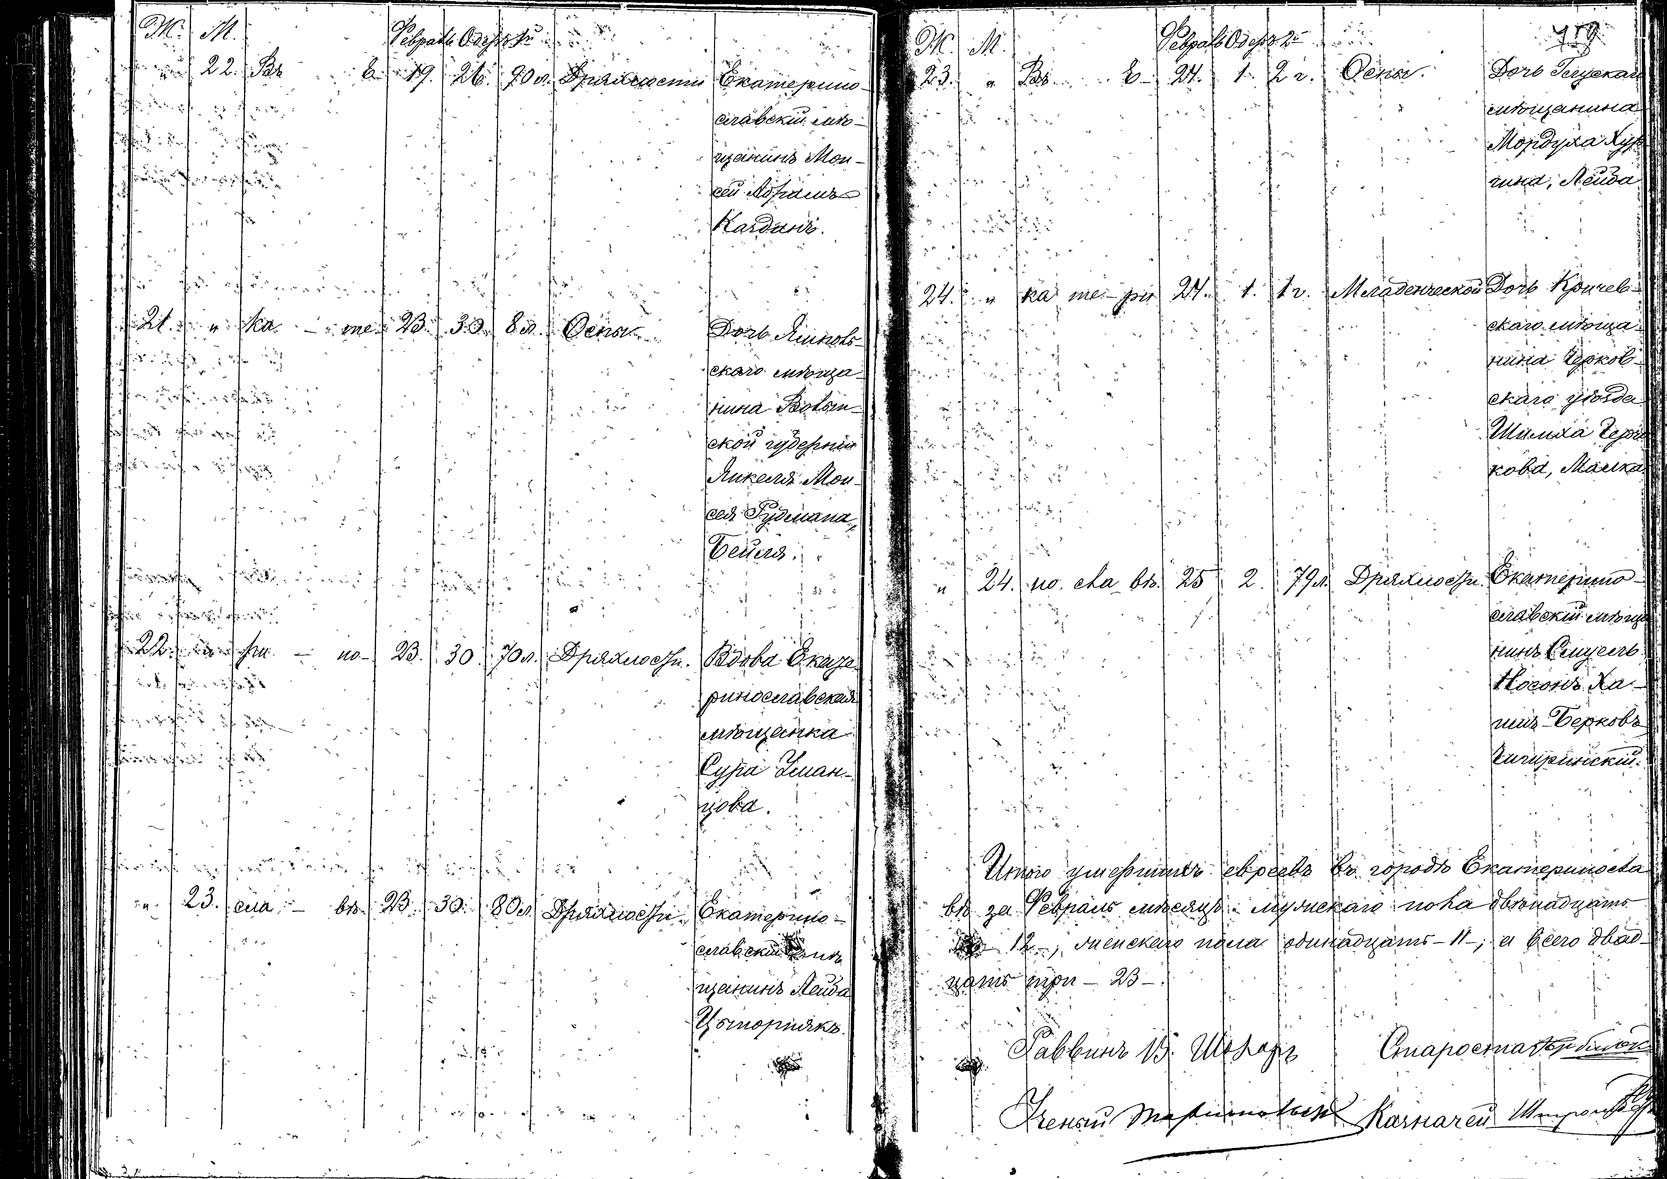 Ж. М. Февраль Одеръ 1й
" 22. Въ Е 19. 26. 70 л. Дряхлости Екатерино-
славскій мѣ-
щанинъ Мои-
сей Абрамъ
Каздинъ.
21 " ка - те 23. 30. 8 л. Оспы. Дочь Ямполь-
скаго мѣща-
нина Волын-
ской губерніи
Янкеля Мои-
сея Гудмана,
Бейля.
22. " ри - но- 23. 30. 70 л. Дряхлости. Вдова Екате-
ринославская
мѣщанка
Сура Уман-
цова.
" 23. сла - вѣ 23. 30. 80 л. Дряхлости. Екатерино-
славскій
щанинъ Лейба
Ж. М. Февраль Одеръ 2й
23. " Въ Е- 24. 1. 2 г. Оспы. Дочь Глускаго
мѣщанина
Мордуха Хур-
гина, Лейба
24. " ка те-ри 24. 1. 1 г. Младенческой Дочь Кричев-
скаго мѣща-
нина Чериков-
скаго уѣзда
кова, Малка
" 24. но. сла вѣ. 25 2. 79 л. Дряхлости. Екатерино-
славскій мѣща-
нинъ Смуель
Носонъ Ха-
имъ Берковъ
Чигиринскій.
Итого умершихъ евреевъ въ городѣ Екатериносла
вѣ за Февраль мѣсяцъ: мужскаго пола двѣнадцать
12-, женскаго пола одинадцать - 11-; а всего двад-
цать три - 23-.
Раввинъ В. Шкляръ Староста
Ученый Казначей